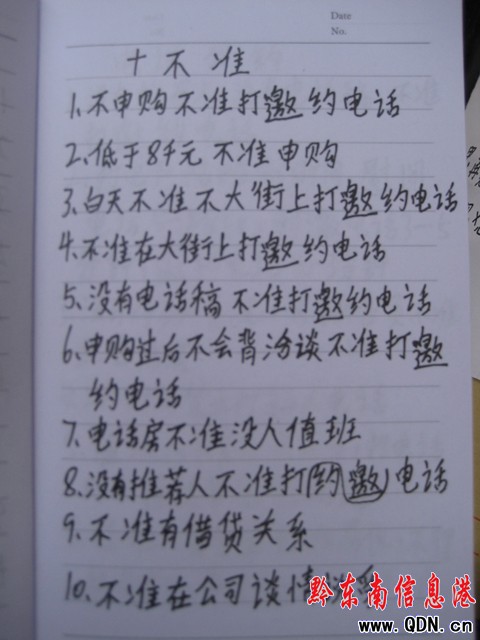 Date
No.
十不准
1.不申购不准打邀约电话
2.低于8千元不准申购
3.白天不准不大街上打邀约电话
4.不准在大街上打邀约电话
5.没有电话稿不准打邀约电话
6.申购过后不会背洽谈不准打邀
约电话
7.电话房不准没人值班
8.没有推荐人不准打约邀电话
9.不准有借贷关系
10.不准在公司谈情
黔东南信息港
www.QDN.cn